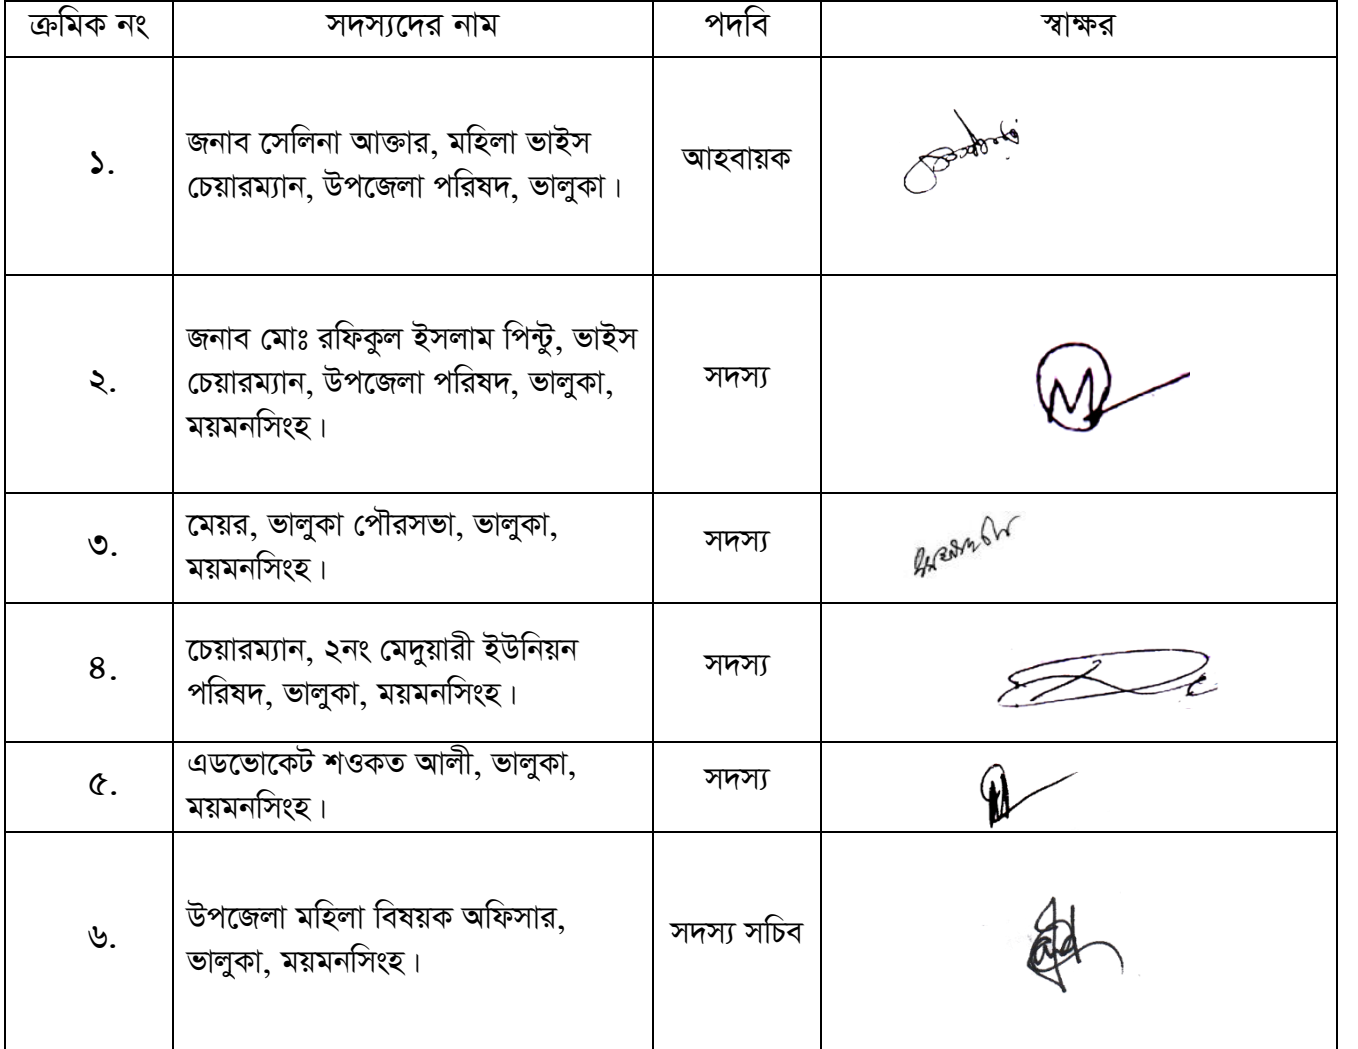 ক্রমিক নং সদস্যদের নাম পদবি স্বাক্ষর
১. জনাব সেলিনা আক্তার, মহিলা ভাইস
চেয়ারম্যান, উপজেলা পরিষদ, ভালুকা। আহবায়ক
২. জনাব মোঃ রফিকুল ইসলাম পিন্টু, ভাইস
চেয়ারম্যান, উপজেলা পরিষদ, ভালুকা, সদস্য
ময়মনসিংহ।
৩. মেয়র, ভালুকা পৌরসভা, ভালুকা,
ময়মনসিংহ। সদস্য
৪. চেয়ারম্যান, ২নং মেদুয়ারী ইউনিয়ন
পরিষদ, ভালুকা, ময়মনসিংহ। সদস্য
৫. এডভোকেট শওকত আলী, ভালুকা,
ময়মনসিংহ। সদস্য
৬. উপজেলা মহিলা বিষয়ক অফিসার,
ভালুকা, ময়মনসিংহ। সদস্য সচিব